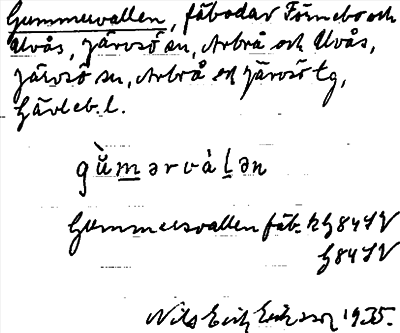 Gummursvallen, fäbodar Förnebo och
Ulvås, Järvsö sn, Arbrå och Ulvås,
Järvsö sn, Arbrå och Järvsö tg,
Gävleb. l.
gùmərvàlən
Gummersvallen fäb. kg 84 SV
G 84 SV
Nils Erik Eriksson 1935.